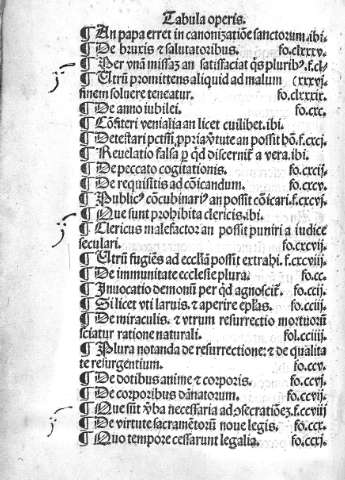 Tabula operis.
¶ An papa erret in canonizatiõe sanctorum.ibi.
¶ De bruxis ⁊ salutatoribus. fo.clxxxv.
¶ Per vnã missaʒ an satisfaciat q̃s pluribꝰ.f.cl/
¶ Utrũ promittens aliquid ad malum (xxxvj.
finem soluere teneatur. fo.clxxxix.
¶ De anno iubilei. fo.cxc.
¶ Cõfiteri venialia an licet cuilibet.ibi.
¶ Detestari pctm̃ ꝓpriã vtute an possit hõ.f.cxcj.
¶ Reuelatio falsa ꝑ qd discernit᷑ a vera.ibi.
¶ De peccato cogitationis. fo.cxcij.
¶ De requisitis ad cõicandum. fo.cxcv.
¶ Publicꝰ cõcubinariꝰ an possit cõicari.f.cxcvj.
¶ Que sunt prohibita clericis.ibi.
¶ Clericus malefactor an possit puniri a iudice
seculari. fo.cxcvij.
¶ Utrũ fugiẽs ad eccliã possit extrahi.f.cxcviij.
¶ De immunitate ecclesie plura. fo.cc.
¶ Inuocatio demonũ per qd agnoscit᷑. fo.ccij.
¶ Si licet vti laruis.⁊ aperire ep̃las. fo.cciij.
¶ De miraculis. ⁊ vtrum resurrectio mortuorũ
sciatur ratione naturali. fol.cciiij.
¶ Plura notanda de resurrectione:⁊ de qualita
te resurgentium. fo.ccv.
¶ De dotibus anime ⁊ corporis. fo.ccvj.
¶ De corporibus dãnatorum. fo.ccvij.
¶ Que sũt ṽba necessaria ad ꝯsecrationeʒ.f.ccviij
¶ De virtute sacramẽtorũ noue legis. fo.ccx.
¶ Quo tempore cessarunt legalia. fo.ccxj.